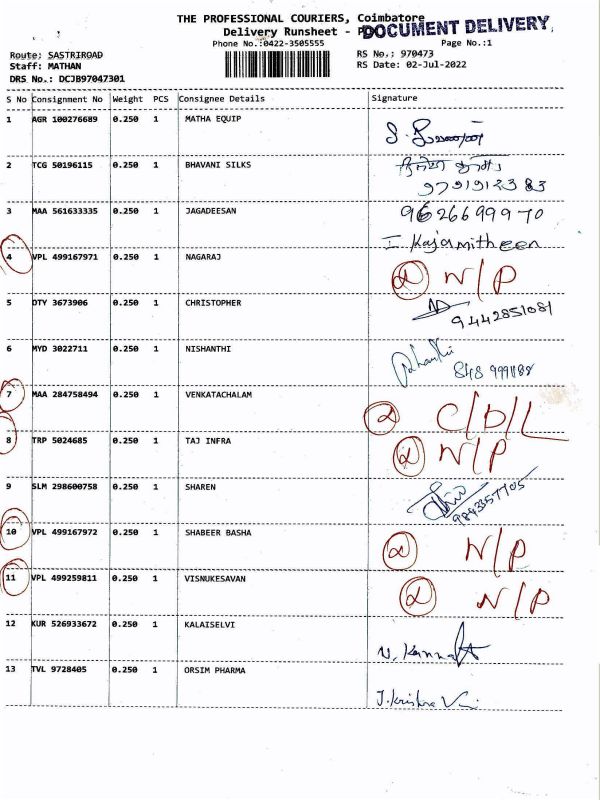 THE PROFESSIONAL COURIERS, Coimbatore
Delivery Runsheet -
DOCUMENT DELIVERY
Phone No.:0422-3505555
Page No.:1
Route: SASTRIROAD
RS No.: 970473
Staff: MATHAN
RS Date: 02-Jul-2022
DRS No.: DCJB97047301
S No Consignment No Weight PCS Consignee Details Signature
1 AGR 100276689 0.250 1 MATHA EQUIP
2 TCG 50196115 0.250 1 BHAVANI SILKS
3 MAA 561633335 0.250 1 JAGADEESAN 9626699970
I Kajamitheen
4 VPL 499167971 0.250 1 NAGARAJ N/P
5 OTY 3673906 0.250 1 CHRISTOPHER 9442851081
6 MYD 3022711 0.250 1 NISHANTHI
7 MAA 284758494 0.250 1 VENKATACHALAM C/D/L
8 TRP 5024685 0.250 1 TAJ INFRA N/P
9 SLM 298600758 0.250 1 SHAREN 9843357705
10 VPL 499167972 0.250 1 SHABEER BASHA N/P
11 VPL 499259811 0.250 1 VISNUKESAVAN N/P
12 KUR 526933672 0.250 1 KALAISELVI
13 TVL 9728405 0.250 1 ORSIM PHARMA